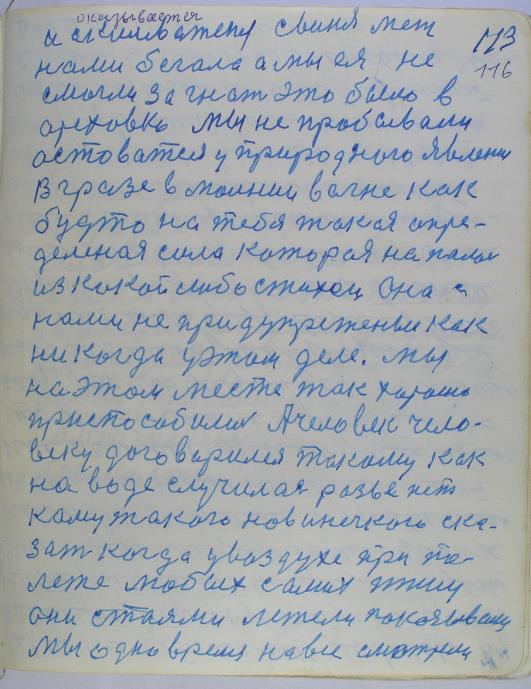 оказывается
113
116
свиня меж
нами бегала а мы ея не
смогли загнат это было в
ореховкь мы не пробывали
остоватся у природного явлени
в грозе в молнии вогне как
будто на тебя такая опре-
деленая сила которая напала
из какой либо стихои она с
нами не придупреженыи как
никогда уэтом деле. мы
на этом месте так хорошо
приспособилис Ачеловек чело-
веку договарился такому как
на воде случилая разве нет
камутакого новинечкого ска-
зат когда увоздухе при по-
лете любых самих птиц
они стаями летели показывали
мы одно время на все смотрели